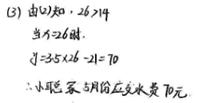 (3) 由(2)知，26>14
当x=26时.
y=3.5×26-21=70
∴小聪家5月份应交水费70元.